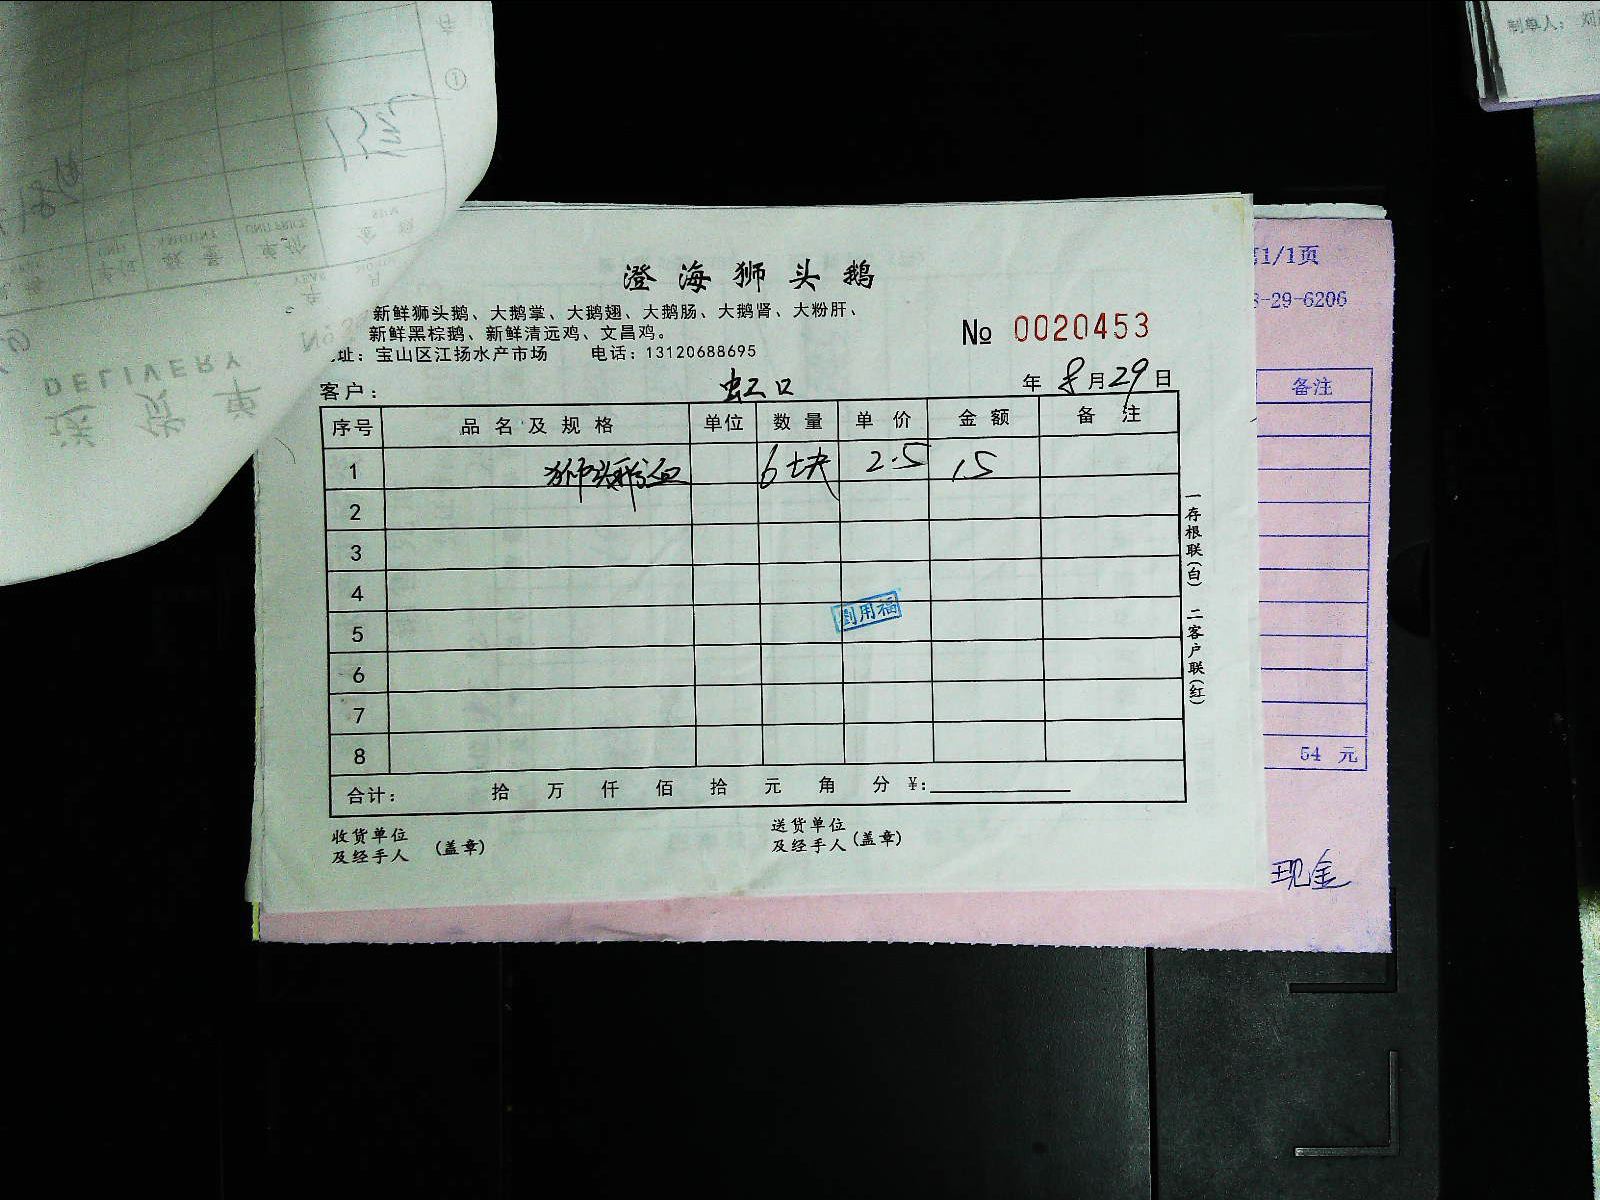 制单人: 刘
DELIVERY
送 货 单
澄海狮头鹅
新鲜狮头鹅、大鹅掌、大鹅翅、大鹅肠、大鹅肾、大粉肝、
新鲜黑棕鹅、新鲜清远鸡、文昌鸡。
址：宝山区江扬水产市场 电话：13120688695
№ 0020453
客户： 虹口 年 8 月 29 日
序号 品名及规格 单位 数量 单价 金额 备注
1 狮头鹅血 6块 2.5 15
2
3
4
5
6
7
8
用福
合计： 拾 万 仟 佰 拾 元 角 分 ¥:
收货单位
及经手人 (盖章)
送货单位
及经手人 (盖章)
一存根联(白) 二客户联(红)
1/1页
-29-6206
备注
54 元
现金